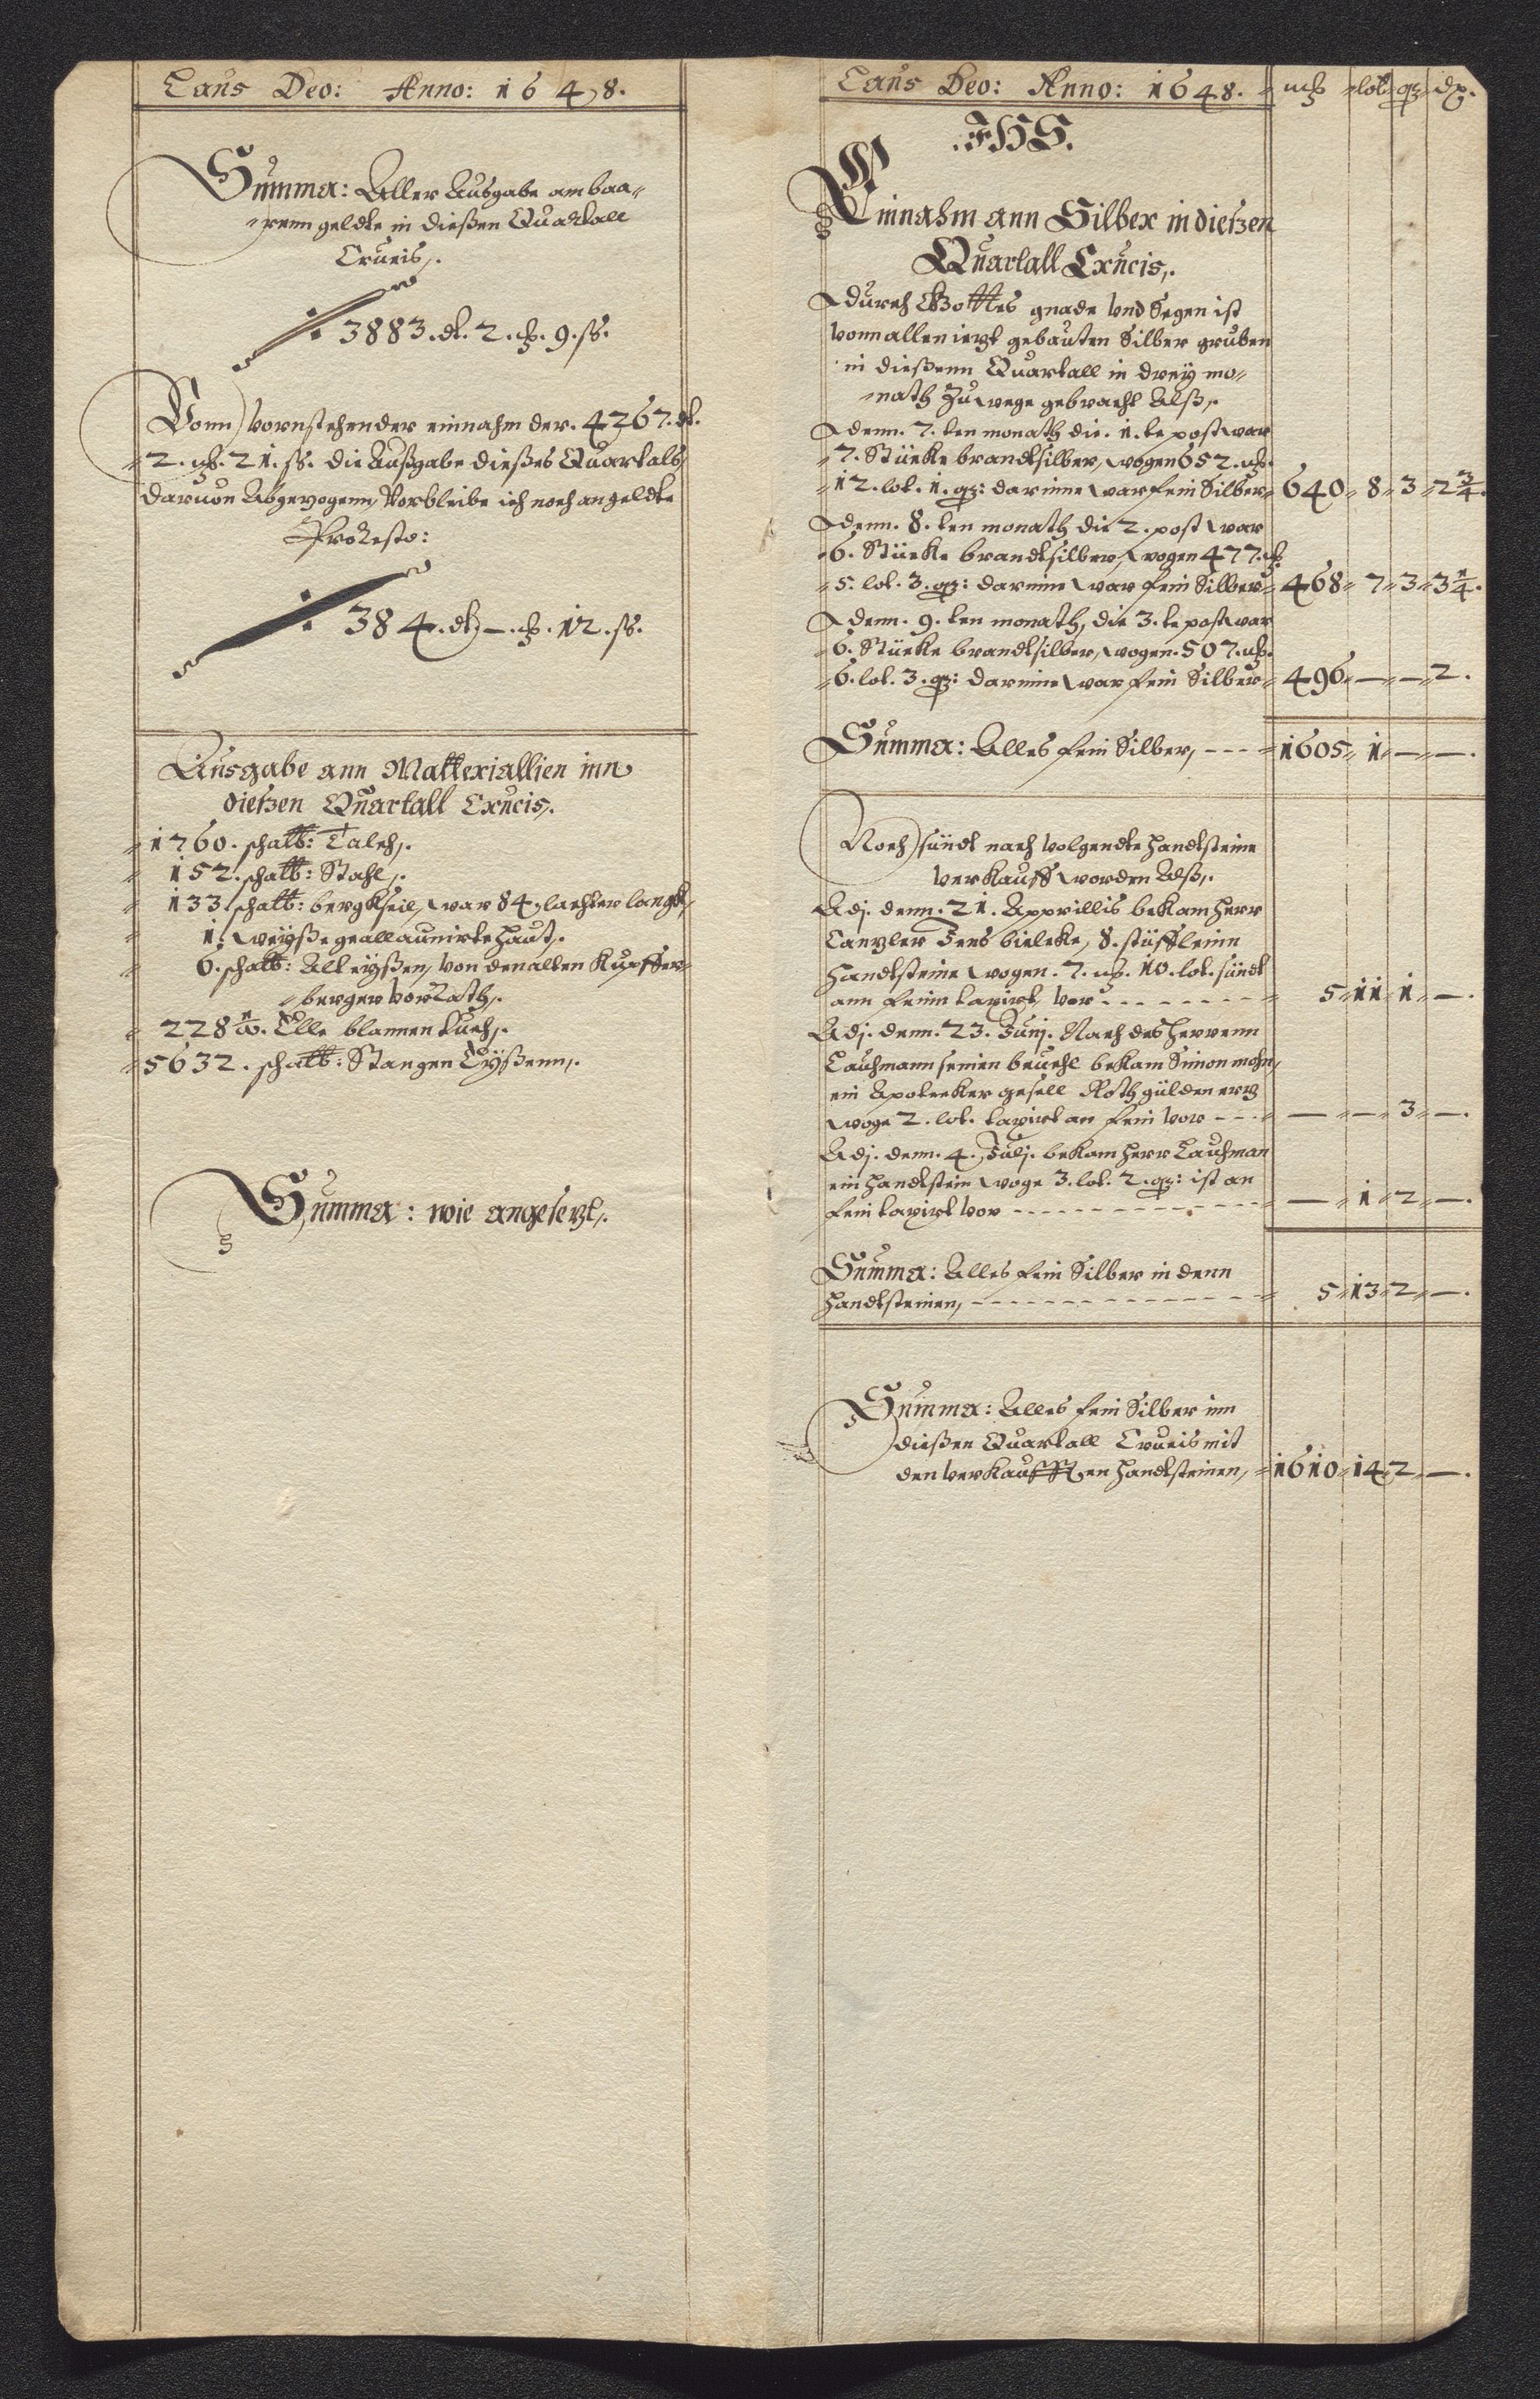 Laus Deo: Anno: 1648.
Summa: Aller Ausgabe am baa=
=renn geldte in dießen Quartall
Crucis,.
3883. dl. 2. . 9. ss.
Vonn vornstehender einnahm der. 4267. dl.
2. . 21. ss. die Außgabe dießes Quartals,
daruon Abgezogenn, Verbleibe ich noch an geldte
Pro Resto:
384. dl. — . . 12. ss.
Ausgabe ann Matteriallien inn
dießen Quartall Crucis,.
1760. schalb: Talch,.
152. schalb: Stahl,.
133. schalb: bergkseil, war 84, lachter langk,
1. weyße geallaunirte haut,.
6. schalb: Alt eyßen, von den alten Kupffer=
=berger vorRath,.
228 Elle blannen tuch,.
5632. schalb: Stangen Eyßenn,.
Summa: wie angesezt,.
Laus Deo: Anno: 1648. = mk = lot = qz = dp.
.JHS.
Einnahm ann Silber in dießen
Quartall Crucis,.
durch Gottes gnade vnd Segen ist
vonn allen iezt gebauten Silber gruben
in dießenn Quartall in drey mo=
=nath Zu wege gebracht Alß,.
denn. 7. ten monath die. 1. te post war
7. Stücke brandtsilber, wogen 652. mk.
12. lot. 1. qz: darinne war fein Silber = 640 = 8 = 3 = 2 3/4.
denn. 8. ten monath die 2. post war
6. Stücke brandtsilber, wogen 477. mk.
5. lot. 3. qz: darinne war fein Silber = 468 = 7 = 3 = 3 1/4.
denn. 9. ten monath, die 3. te post war
6. Stücke brandtsilber, wogen. 507. mk.
6. lot. 3. qz: darinne war fein Silber = 496 = — = — = 2.
Summa: Alles fein Silber, - - - = 1605 = 1 = — = —.
Noch sündt nach volgendte handtsteine
verkaufft worden Alß,.
Adj. denn. 21. Apprillis bekam herr
Canzler Jens bielcke, 8. stüffleinn
handtsteine wogen. 7. mk. 10. lot. sündt
ann feinn taxirt, vor - - - - - - - = 5 = 11 = 1 = —.
Adj. denn. 23. Junj. Nach des herrenn
Lauhmann seinen beuehl bekam Simon mohn,
ein Apotecker gesell Roth gülden erz
woge 2. lot. taxirt an fein vor - - - = — = — = 3 = —.
Adj. denn. 4. Julj. bekam herr Lauhman
ein handtstein woge 3. lot. 2. qz: ist an
fein taxirt vor - - - - - - - - - - = — = 1 = 2 = —.
Summa: Alles fein Silber in denn
handtsteinen, - - - - - - - - - - = 5 = 13 = 2 = —.
Summa: Alles fein Silber inn
dießen Quartall Crucis mit
den verkaufften handtsteinen, = 1610 = 14 = 2 = —.